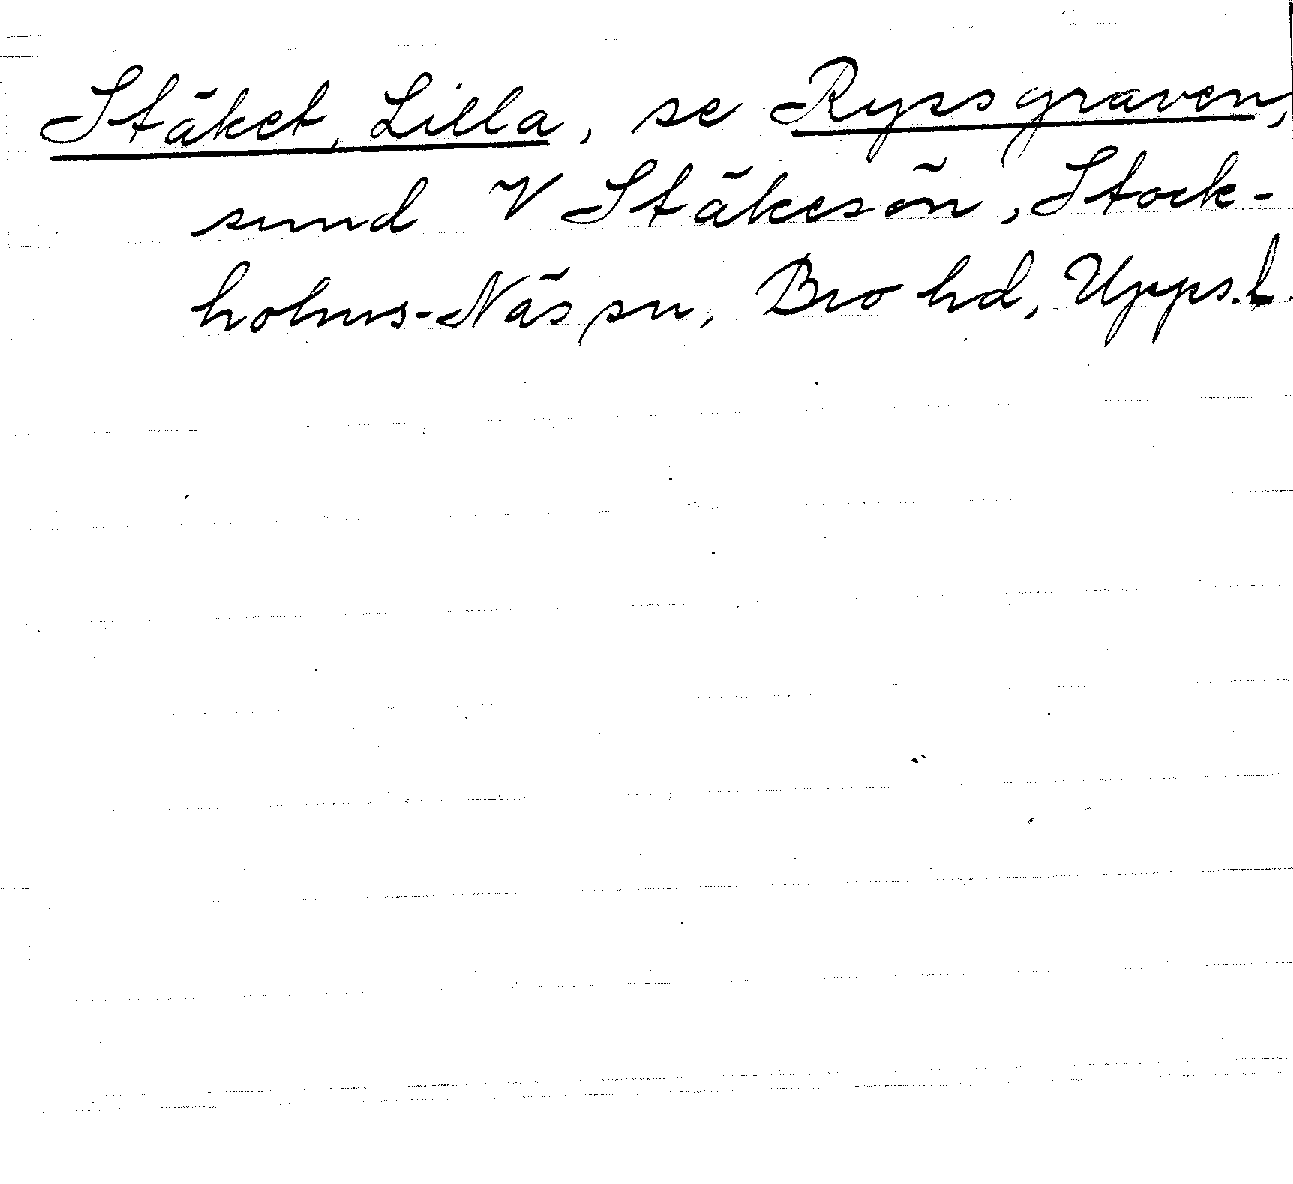 Stäket, Lilla, se Ryssgraven,
sund V Stäkesön, Stock-
holms-Näs sn, Bro hd, Upps.l.